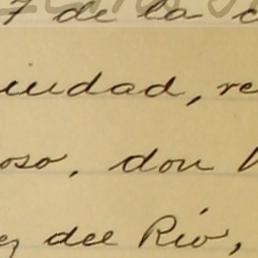 7 de la c
iudad, re
oso, don
ez del Río,